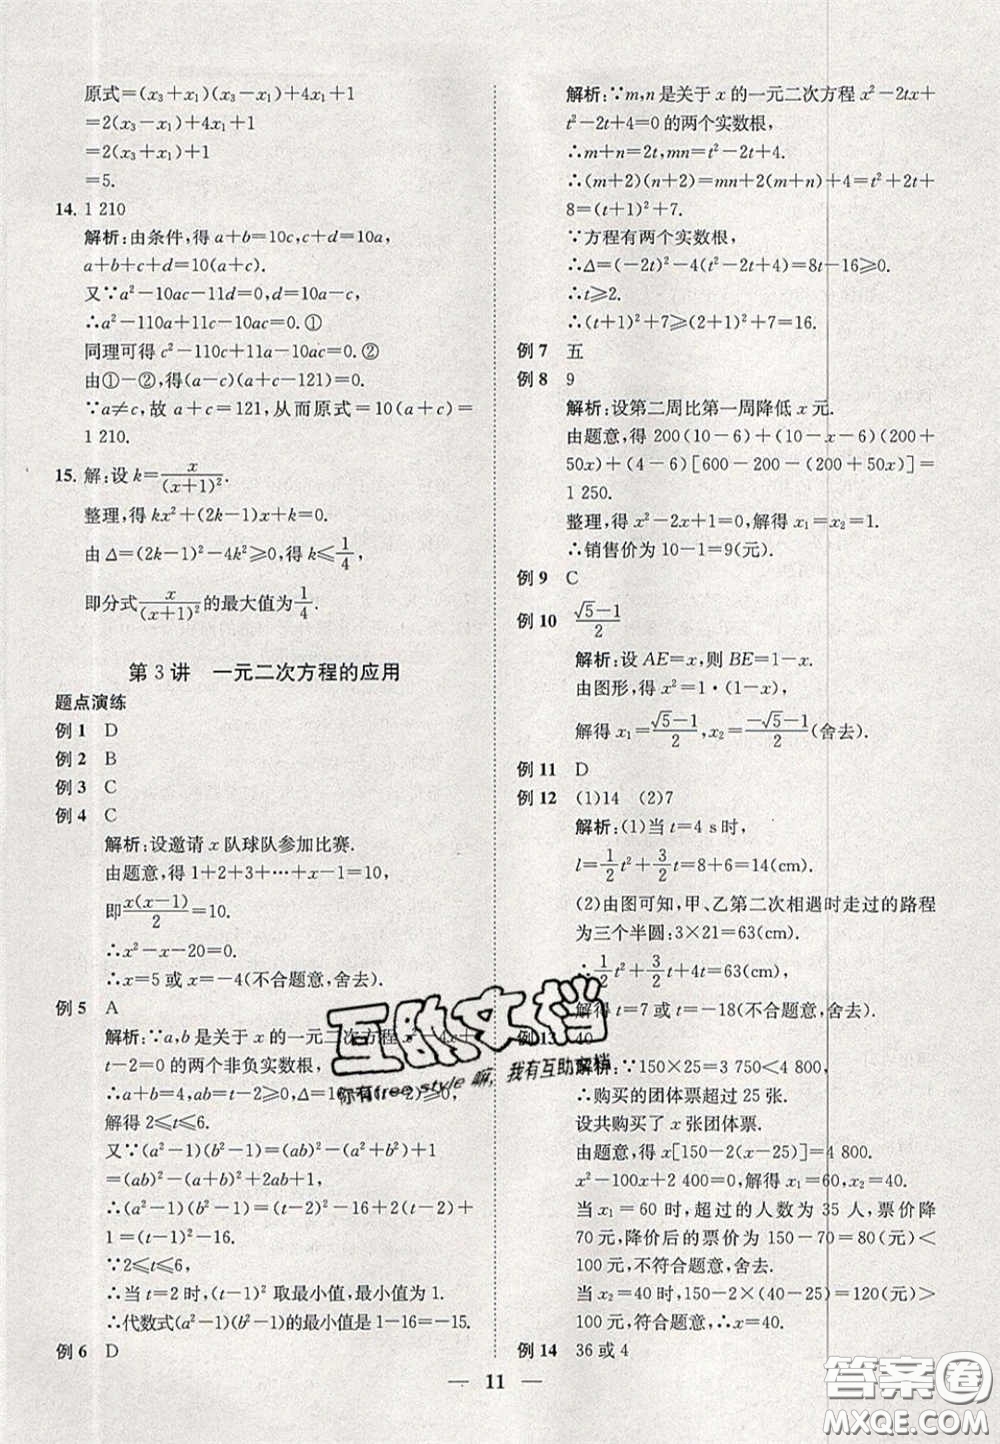 原式=(x₃+x₁)(x₃-x₁)+4x₁+1
=2(x₃-x₁)+4x₁+1
=2(x₃+x₁)+1
=5.
14. 1 210
解析:由条件,得 a+b=10c,c+d=10a,
a+b+c+d=10(a+c).
又∵a²-10ac-11d=0,d=10a-c,
∴a²-110a+11c-10ac=0.①
同理可得 c²-110c+11a-10ac=0.②
由①-②,得(a-c)(a+c-121)=0.
∵a≠c,故 a+c=121,从而原式=10(a+c)=
1 210.
15. 解:设 k=x/(x+1)².
整理,得 kx²+(2k-1)x+k=0.
由 Δ=(2k-1)²-4k²≥0,得 k≤1/4,
即分式x/(x+1)²的最大值为1/4.
第 3 讲 一元二次方程的应用
题点演练
例 1 D
例 2 B
例 3 C
例 4 C
解析:设邀请 x 队球队参加比赛.
由题意,得 1+2+3+…+x-1=10,
即x(x-1)/2=10.
∴x²-x-20=0.
∴x=5 或 x=-4(不合题意,舍去).
例 5 A
解析:∵a,b 是关于 x 的一元二次方程 x²-4x+
t-2=0 的两个非负实数根,
∴a+b=4,ab=t-2,Δ=16-4(t-2)≥0,
解得 2≤t≤6.
又∵(a²-1)(b²-1)=(ab)²-(a²+b²)+1
=(ab)²-(a+b)²+2ab+1,
∴(a²-1)(b²-1)=(t-2)²-16+2(t-2)+
1=(t-1)²-16.
∵2≤t≤6,
∴当 t=2 时,(t-1)² 取最小值,最小值为 1.
∴代数式(a²-1)(b²-1)的最小值是 1-16=-15.
例 6 D
解析:∵m,n是关于 x 的一元二次方程 x²-2tx+
t²-2t+4=0 的两个实数根,
∴m+n=2t,mn=t²-2t+4.
∴(m+2)(n+2)=mn+2(m+n)+4=t²+2t+
8=(t+1)²+7.
∵方程有两个实数根,
∴Δ=(-2t)²-4(t²-2t+4)=8t-16≥0.
∴t≥2.
∴(t+1)²+7≥(2+1)²+7=16.
例 7 五
例 8 9
解析:设第二周比第一周降低 x 元.
由题意,得 200(10-6)+(10-x-6)(200+
50x)+(4-6)[600-200-(200+50x)]=
1 250.
整理,得 x²-2x+1=0,解得 x₁=x₂=1.
∴销售价为 10-1=9(元).
例 9 C
例 10 (√5-1)/2
解析:设 AE=x,则 BE=1-x.
由图形,得 x²=1·(1-x).
解得 x₁=(√5-1)/2,x₂=(-√5-1)/2(舍去).
例 11 D
例 12 (1)14 (2)7
解析:(1)当 t=4 s时,
l=1/2t²+3/2t=8+6=14(cm).
(2)由图可知,甲、乙第二次相遇时走过的路程
为三个半圆:3×21=63(cm).
∴1/2t²+3/2t+4t=63(cm),
解得 t=7 或 t=-18(不合题意,舍去).
例 13 40
解析:∵150×25=3 750<4 800,
∴购买的团体票超过 25 张.
设共购买了 x 张团体票.
由题意,得 x[150-2(x-25)]=4 800.
x²-100x+2 400=0,解得 x₁=60,x₂=40.
当 x₁=60 时,超过的人数为 35 人,票价降
70 元,降价后的票价为 150-70=80(元)<
100 元,不符合题意,舍去.
当 x₂=40 时,150-2×(40-25)=120(元)>
100 元,符合题意,∴x=40.
例 14 36 或 4
— 11 —
互助文档
你有free style 嘛, 我有互助文档
答案圈
MXQE.COM